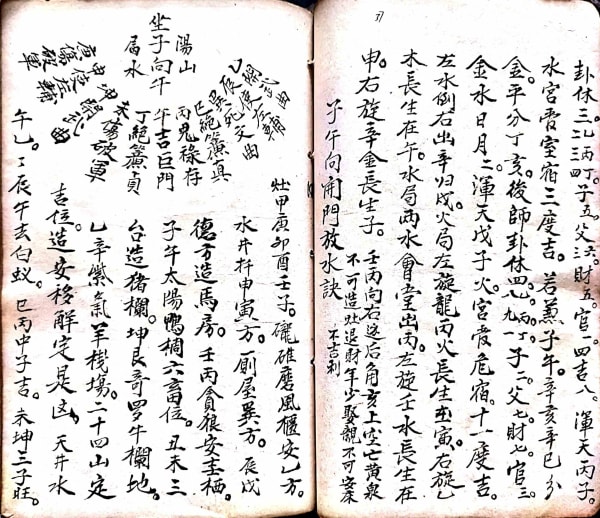 卦休三乙丙丁。子五父六。財五。官一四吉八。渾天丙子。
水宮虛室宿三度吉。若兼子午。辛亥辛巳分
金。平分丁亥。後師卦休四乙丙丁子二父七。財七。官三
金水日月二。渾天戊子火。宮虛危宿。十一度吉。
左水倒右出辛归戌火局左旋龍丙火長生在寅。右旋乙
木長生在午。水局两水會堂出丙左旋壬水長生在
申。右旋辛金長生子。
壬丙向右邊后角亥上空亡黄泉
不可造灶退財年少娶親不可安床
不吉利
子午向開門放水訣
陽山
坐子向午
局水
巳絕簾貞
丙鬼祿存
午吉巨門
丁絕簾貞
未傷破軍
灶甲庚卯酉壬子。礲碓磨風櫃安乙方。
水井杵申寅方。厠屋異方。辰戌
德方造馬房。壬丙貪狼安圭栖
子午太陽鴨椆六畜位。丑未三
台造猪欄。坤艮奇罗牛欄地。
乙辛紫氣羊機場。二十四山定
吉位。造安移解定是凶。天井水
午乙。丁辰午去白蚁。巳丙中子吉。未坤三子旺。